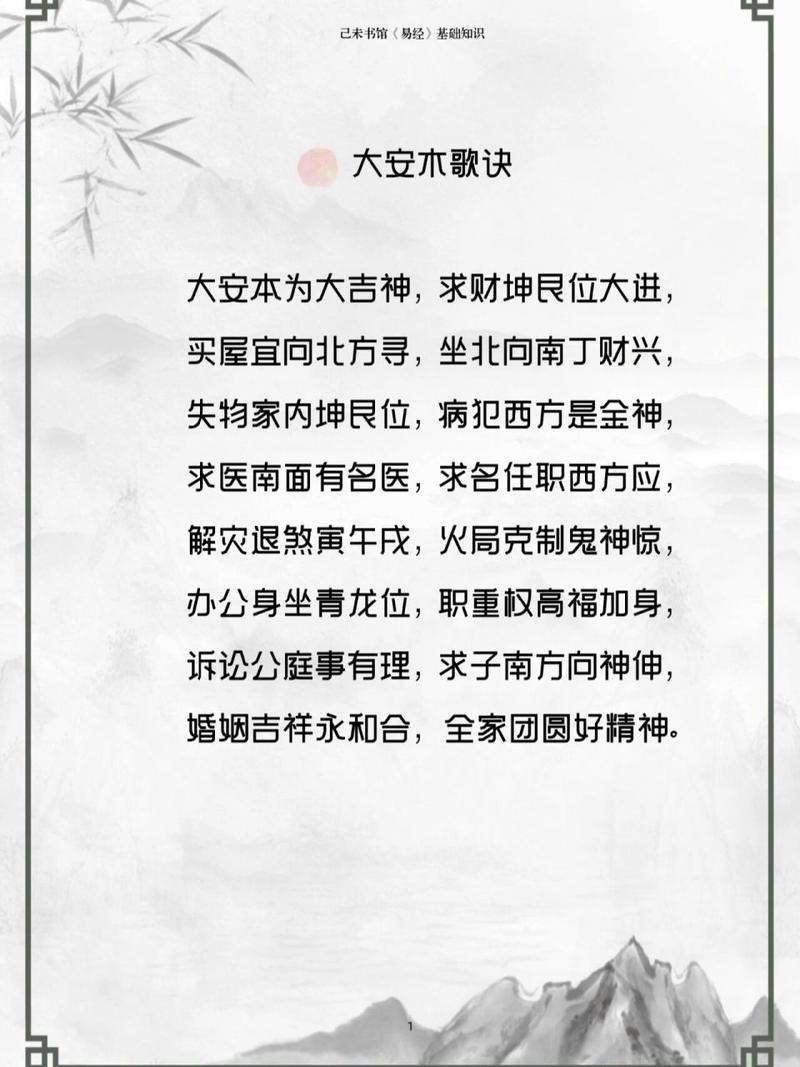 己未书馆《易经》基础知识
大安木歌诀
大安本为大吉神，求财坤艮位大进，
买屋宜向北方寻，坐北向南丁财兴，
失物家内坤艮位，病犯西方是金神，
求医南面有名医，求名任职西方应，
解灾退煞寅午戌，火局克制鬼神惊，
办公身坐青龙位，职重权高福加身，
诉讼公庭事有理，求子南方向神伸，
婚姻吉祥永和合，全家团圆好精神。
1